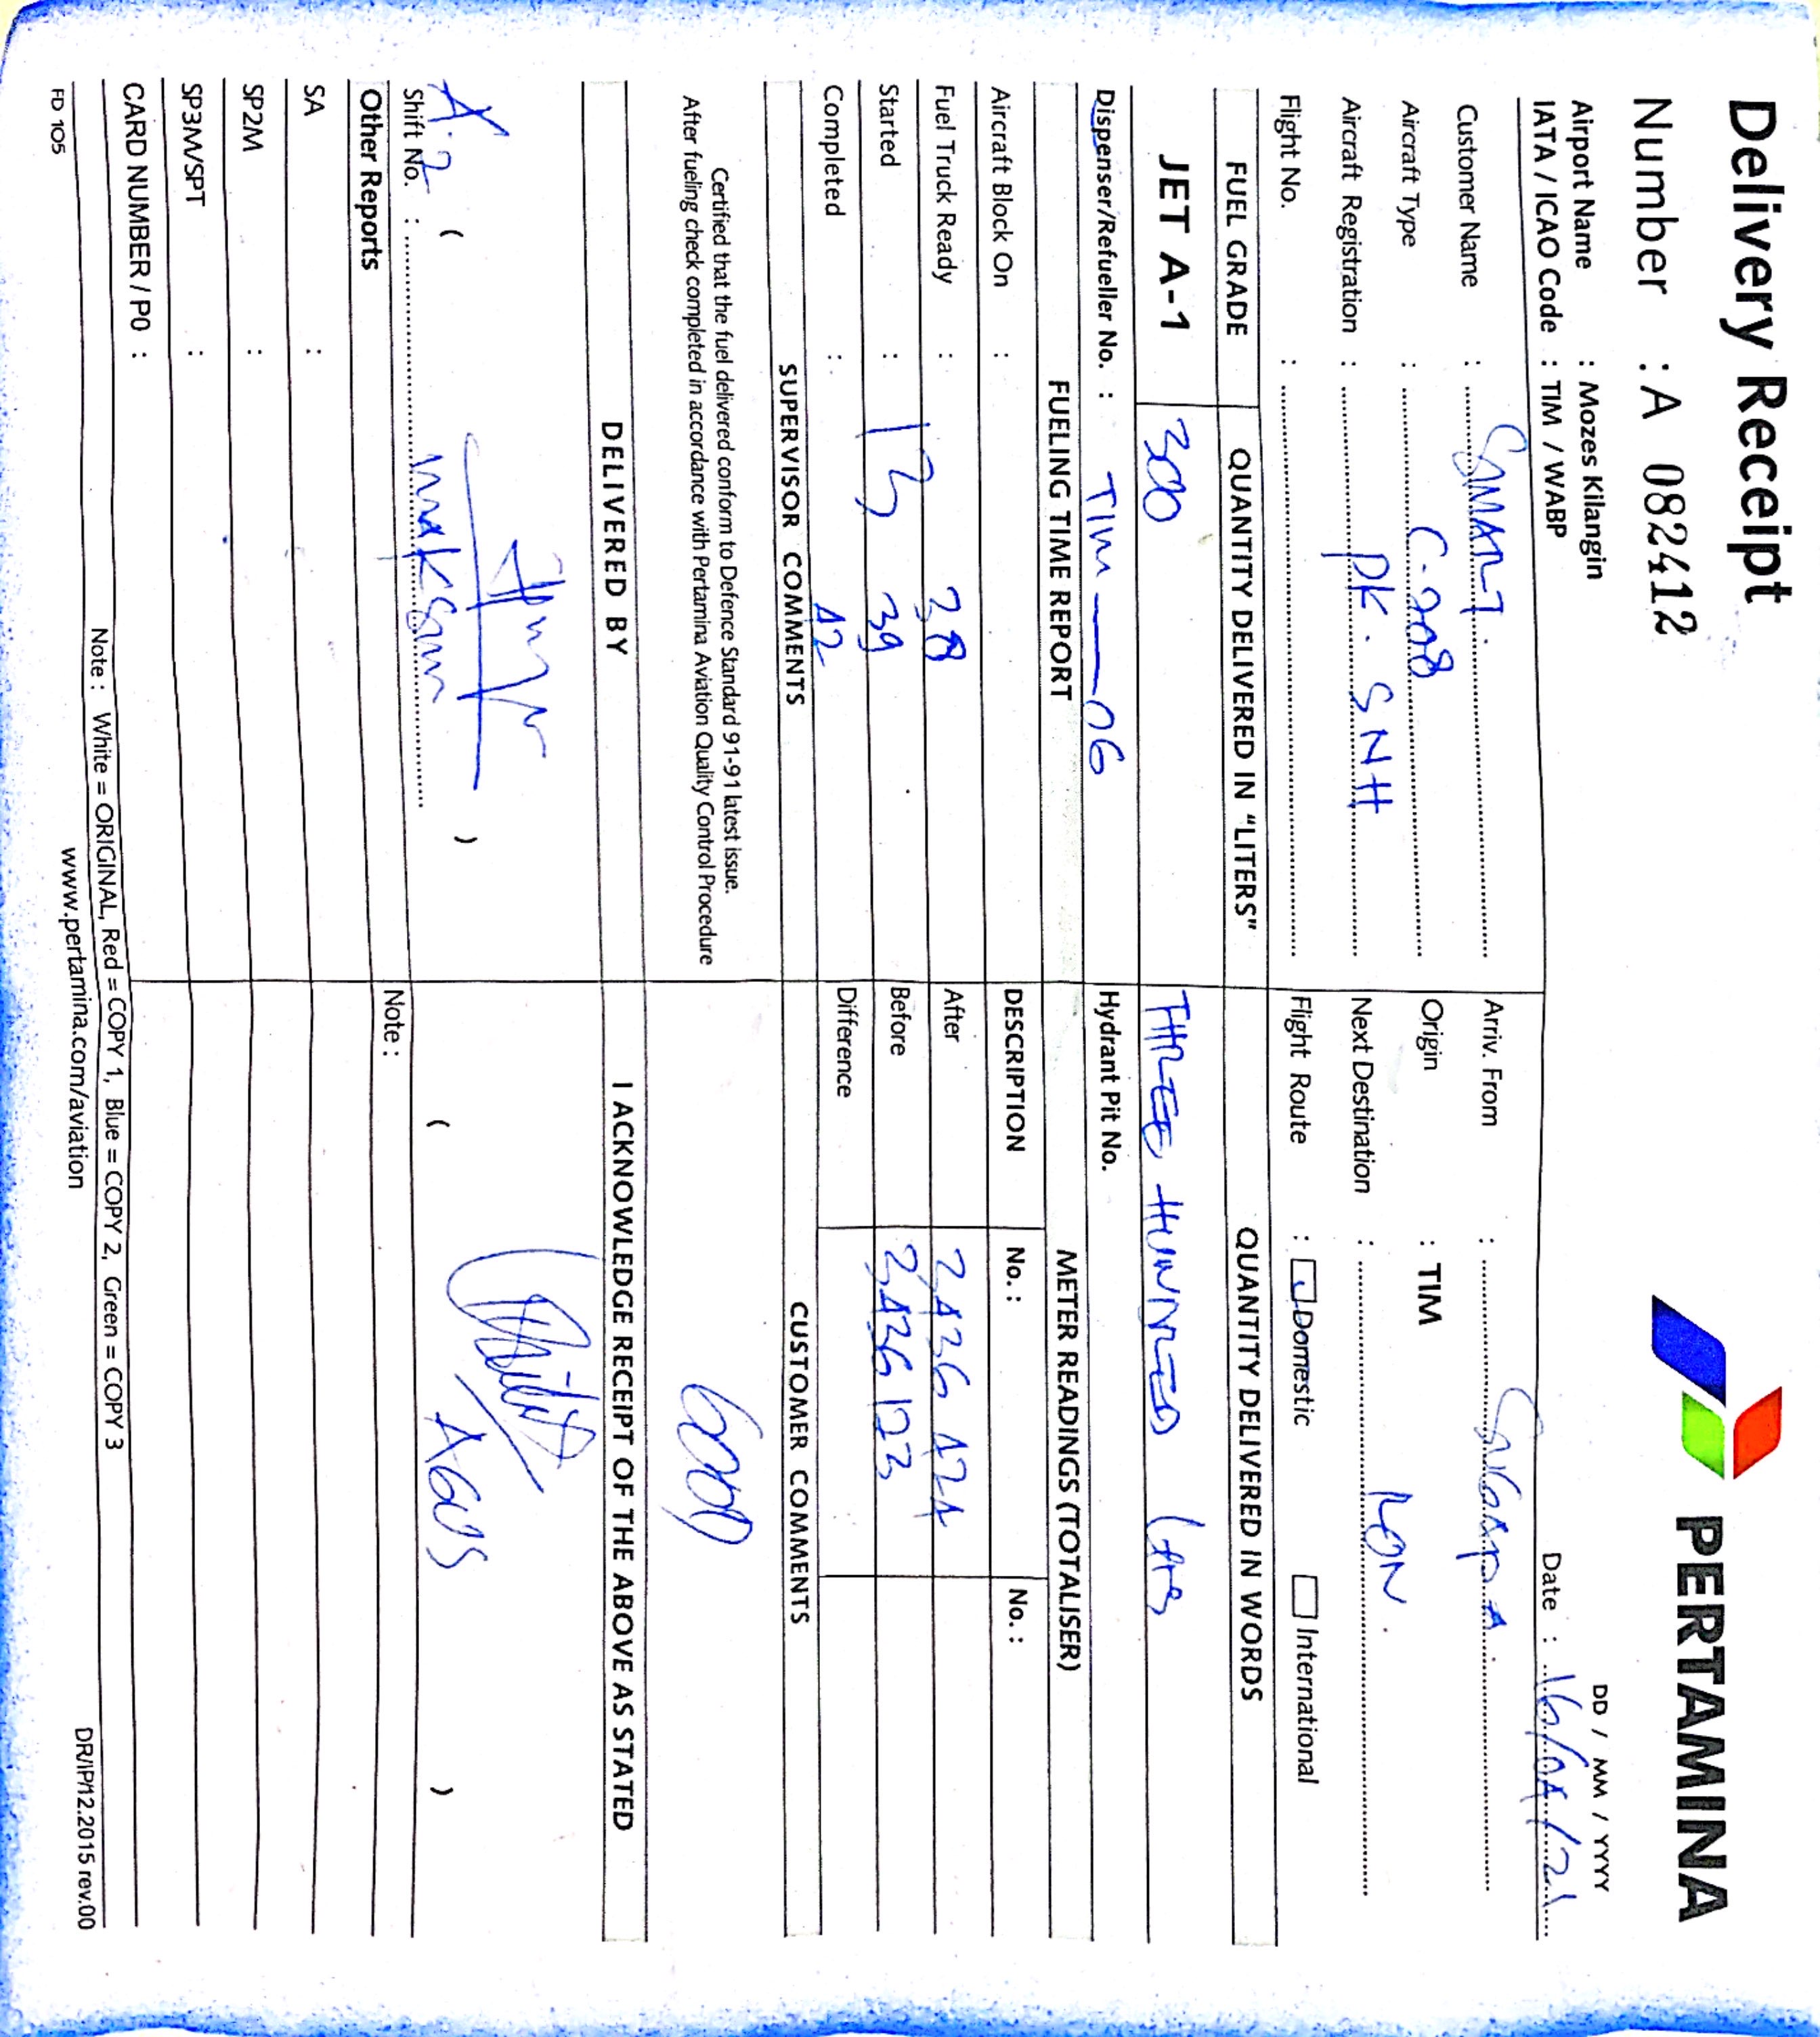 Delivery Receipt
Number : A 082412
PERTAMINA
DD / MM / YYYY
Airport Name : Mozes Kilangin
IATA / ICAO Code : TIM / WABP
Date : 16/04/21
Customer Name : SMART.
Arriv. From :
Aircraft Type : C-208
Origin : TIM
Aircraft Registration : PK. SNH
Next Destination : RON.
Flight No. :
Flight Route : Domestic International
FUEL GRADE QUANTITY DELIVERED IN "LITERS" QUANTITY DELIVERED IN WORDS
JET A-1 300 THREE HUNDRED Ltrs
Dispenser/Refueller No. : TIM — 06 Hydrant Pit No.
FUELING TIME REPORT METER READINGS (TOTALISER)
Aircraft Block On : DESCRIPTION No. : No. :
Fuel Truck Ready : 38 After 2,436 424
Started : 13 39 Before 2,436 123
Completed : 42 Difference
SUPERVISOR COMMENTS CUSTOMER COMMENTS
Certified that the fuel delivered conform to Defence Standard 91-91 latest issue.
After fueling check completed in accordance with Pertamina Aviation Quality Control Procedure
GOOD
DELIVERED BY I ACKNOWLEDGE RECEIPT OF THE ABOVE AS STATED
A.2 ( ) ( AGUS )
Shift No. :
Other Reports Note :
SA :
SP2M :
SP3M/SPT :
CARD NUMBER / P0 :
Note : White = ORIGINAL, Red = COPY 1, Blue = COPY 2, Green = COPY 3
FD 105 www.pertamina.com/aviation DR/IP/12.2015 rev.00